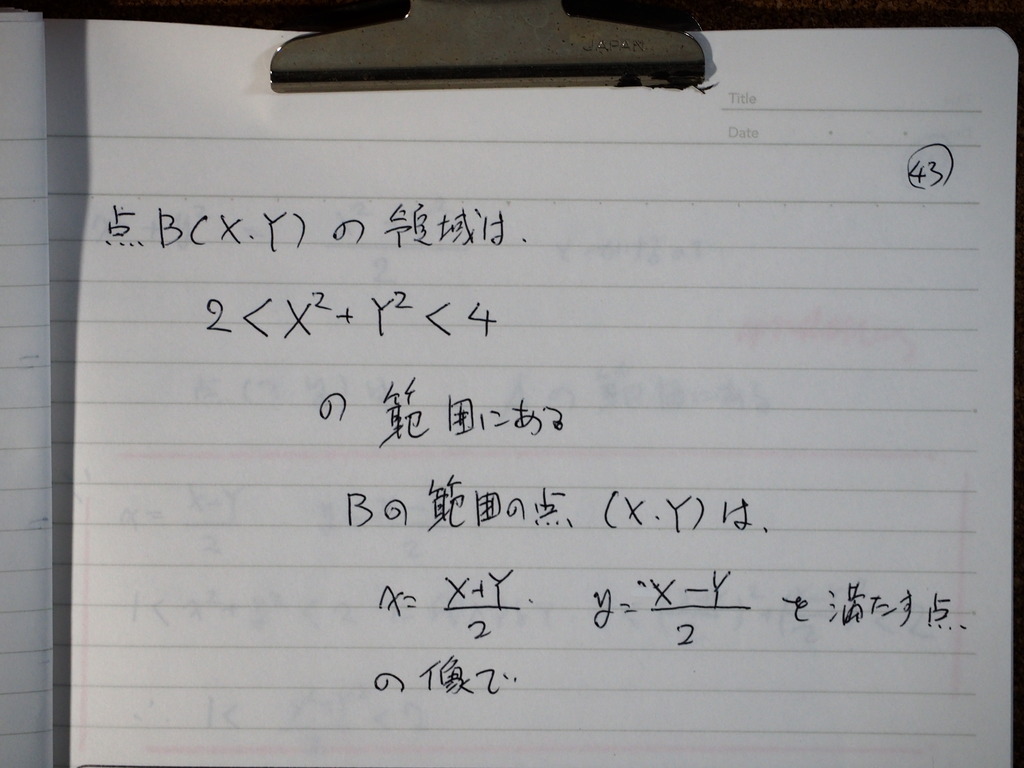 JAPAN
Title
Date
43
点B(X.Y)の領域は、
2<X²+Y²<4
の範囲にある
Bの範囲の点 (X.Y)は、
x=X+Y/2. y=X-Y/2 を満たす点、
の像で